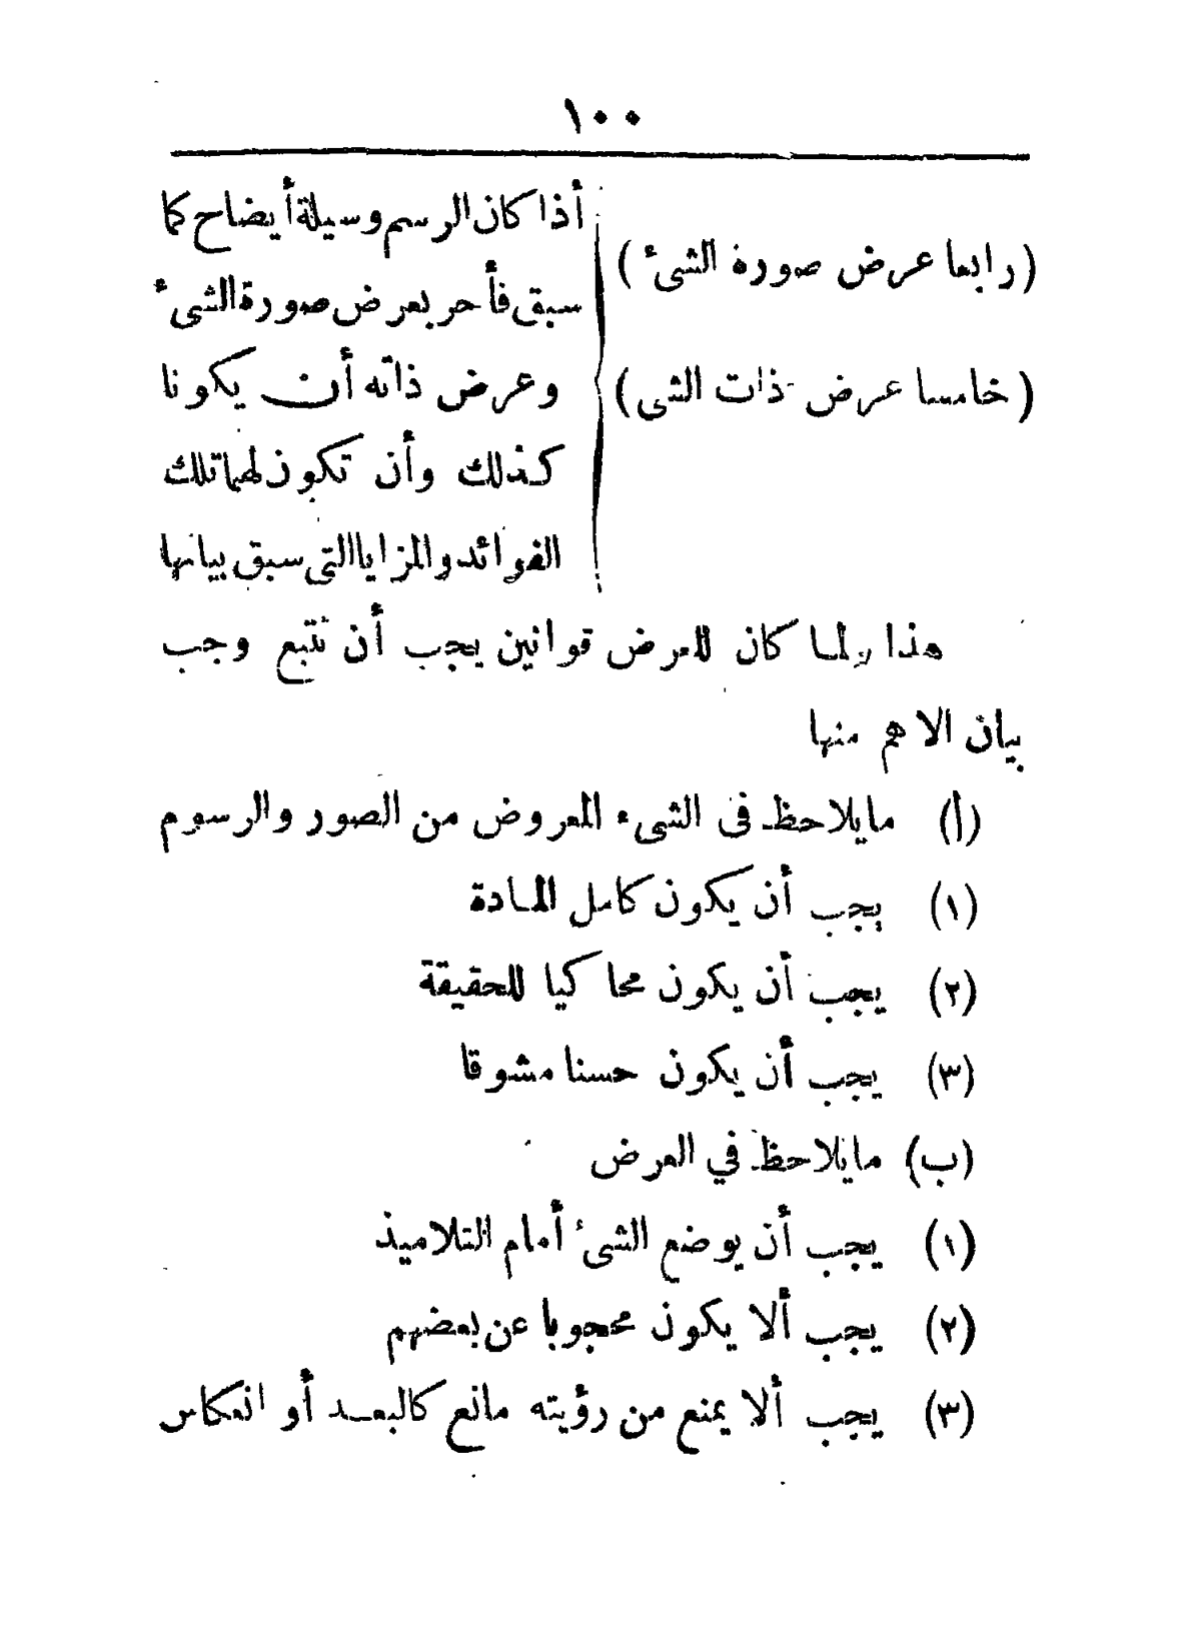 ١٠٠
(رابعا عرض صورة الشئ)
(خامسا عرض ذات الشى)
أذا كان الرسم وسيلة أيضاح كما
سبق فأحر بعرض صورة الشئ
وعرض ذاته أن يكونا
كذلك وأن تكون لهما تلك
الفوائد والمزايا التى سبق بيانها
هذا ولما كان للعرض قوانين يجب أن تتبع وجب
بيان الاهم منها
(أ) مايلاحظ فى الشىء المعروض من الصور والرسوم
(١) يجب أن يكون كامل المادة
(٢) يجب أن يكون محاكيا للحقيقة
(٣) يجب أن يكون حسنا مشوقا
(ب) مايلاحظ في العرض
(١) يجب أن يوضع الشئ أمام التلاميذ
(٢) يجب ألا يكون محجوبا عن بعضهم
(٣) يجب ألا يمنع من رؤيته مانع كالبعد أو انعكاس